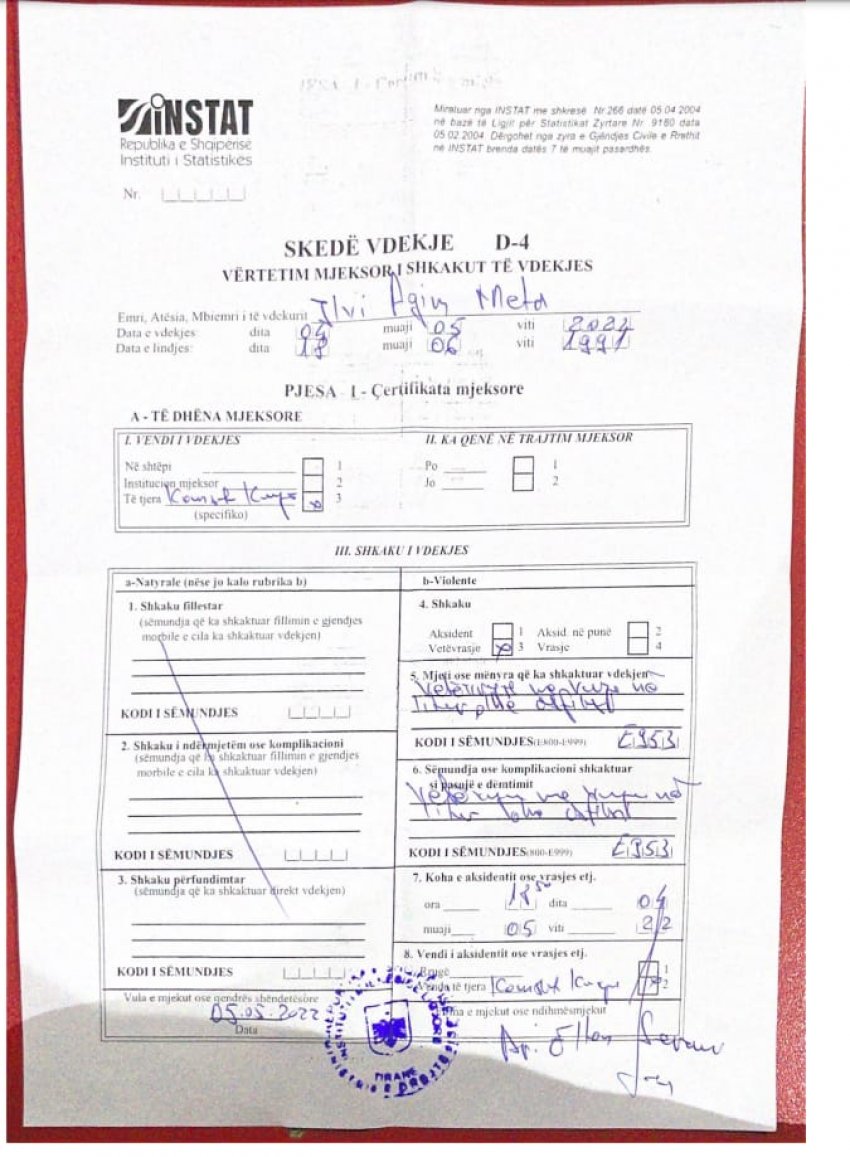 INSTAT
Republika e Shqipërisë
Instituti i Statistikës
Miratuar nga INSTAT me shkresë Nr.266 datë 05.04.2004
në bazë të Ligjit për Statistikat Zyrtare Nr. 9180 data
05.02.2004. Dërgohet nga zyra e Gjëndjes Civile e Rrethit
në INSTAT brenda datës 7 të muajit pasardhës.
Nr.
SKEDË VDEKJE D-4
VËRTETIM MJEKSOR I SHKAKUT TË VDEKJES
Emri, Atësia, Mbiemri i të vdekurit Ilvi Agim Meta
Data e vdekjes: dita 04 muaji 05 viti 2022
Data e lindjes: dita 18 muaji 06 viti 1991
PJESA I - Çertifikata mjeksore
A - TË DHËNA MJEKSORE
I. VENDI I VDEKJES
II. KA QENË NË TRAJTIM MJEKSOR
Në shtëpi 1
Po 1
Institucion mjeksor 2
Jo 2
Të tjera 3
(specifiko)
III. SHKAKU I VDEKJES
a-Natyrale (nëse jo kalo rubrika b)
b-Violente
1. Shkaku fillestar
(sëmundja që ka shkaktuar fillimin e gjendjes
morbile e cila ka shkaktuar vdekjen)
KODI I SËMUNDJES
4. Shkaku
Aksident 1 Aksid. në punë 2
Vetëvrasje x 3 Vrasje 4
5. Mjeti ose mënyra që ka shkaktuar vdekjen
KODI I SËMUNDJES(E800-E999) E953
2. Shkaku i ndërmjetëm ose komplikacioni
(sëmundja që ka shkaktuar fillimin e gjendjes
morbile e cila ka shkaktuar vdekjen)
KODI I SËMUNDJES
6. Sëmundja ose komplikacioni shkaktuar
si pasojë e dëmtimit
KODI I SËMUNDJES(800-E999) E953
3. Shkaku përfundimtar
(sëmundja që ka shkaktuar direkt vdekjen)
KODI I SËMUNDJES
7. Koha e aksidentit ose vrasjes etj.
ora 18 50 dita 04
muaji 05 viti 22
8. Vendi i aksidentit ose vrasjes etj.
Rrugë 1
Vende të tjera 2
Vula e mjekut ose qendrës shëndetësore
05.05.2022
Data
Firma e mjekut ose ndihmësmjekut
TIRANË